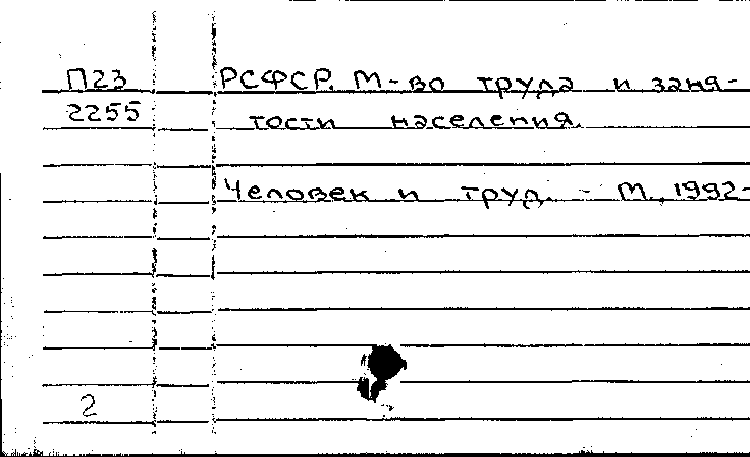 П23 РСФСР. М-во труда и заня-
2255 тости населения.
Человек и труд. - М., 1992-
2